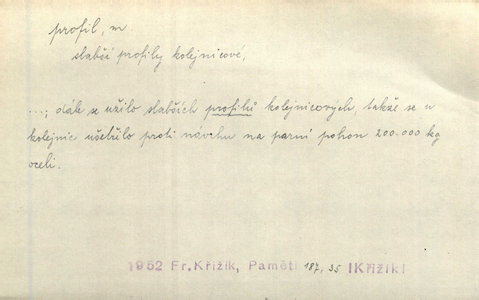 profil, m
slabší profily kolejnicové,
...; dále se užilo slabších profilů kolejnicových, takže se u
kolejnic ušetřilo proti návrhu na parní pohon 200.000 kg
oceli.
1952 Fr.Křižík, Paměti 187, 35 |Křižík|